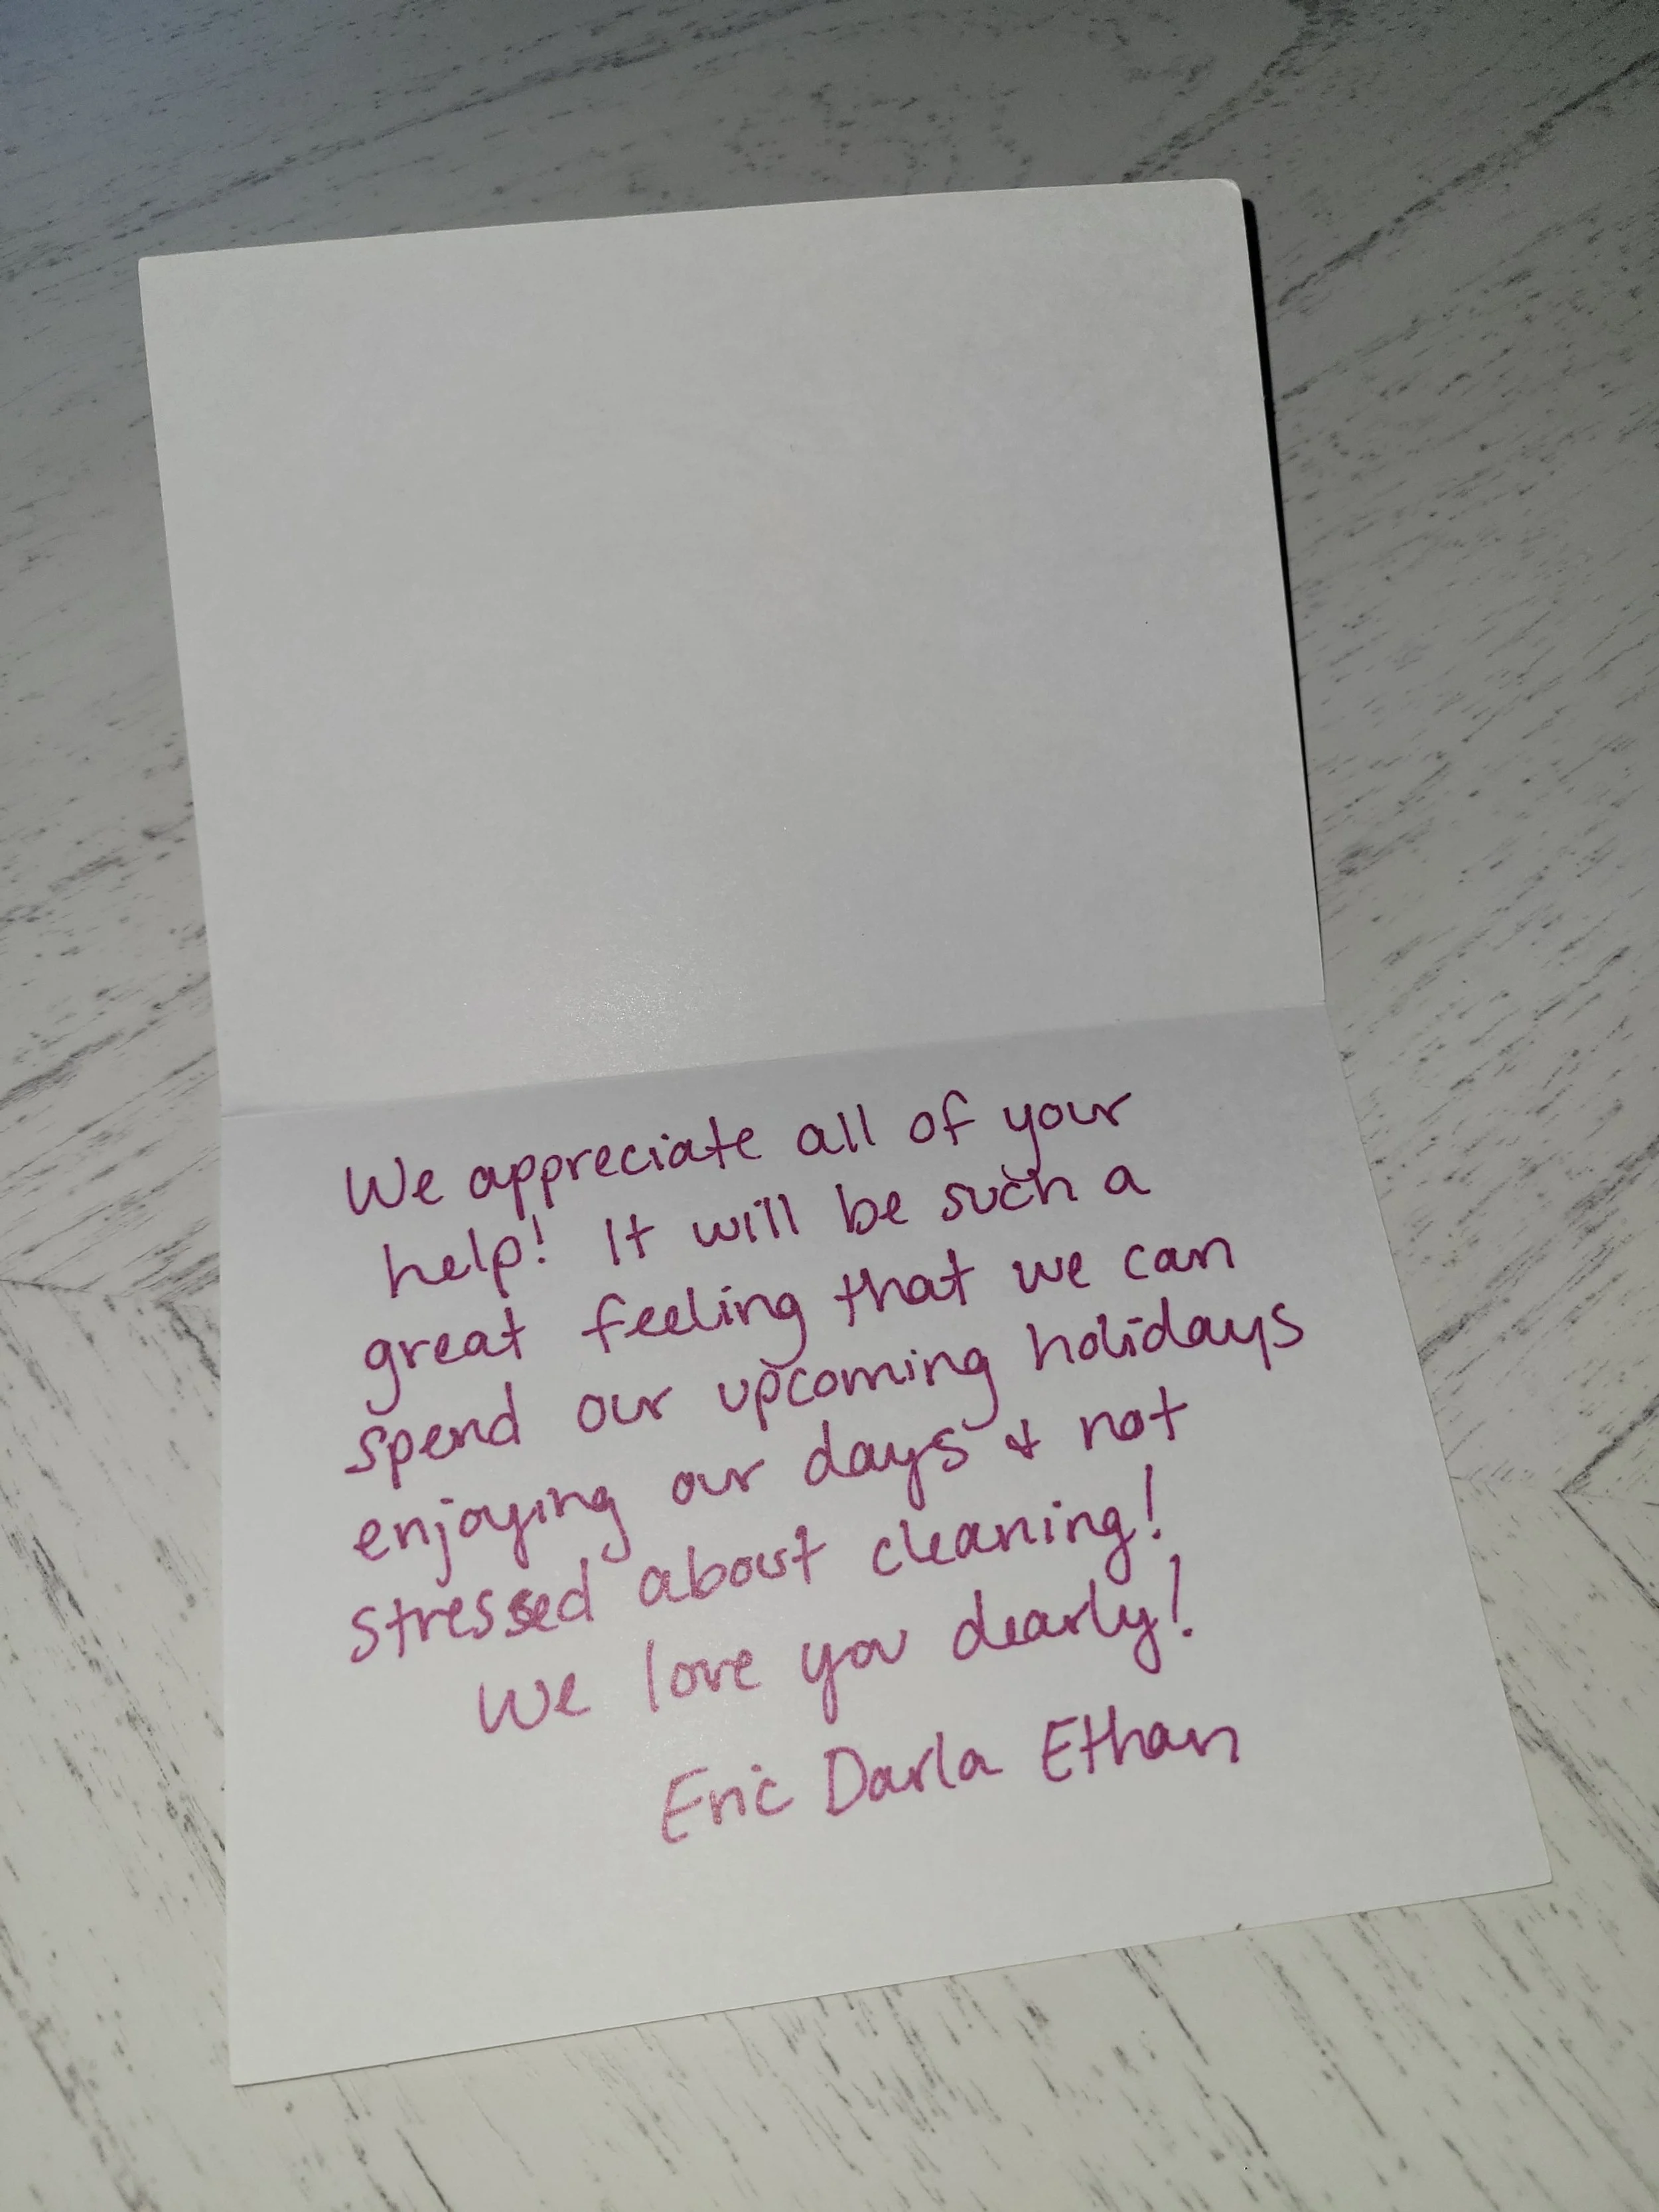 We appreciate all of your
help! It will be such a
great feeling that we can
spend our upcoming holidays
enjoying our days & not
stressed about cleaning!
We love you dearly!
Eric Darla Ethan